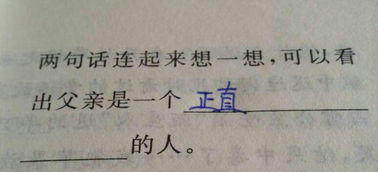 两句话连起来想一想,可以看
出父亲是一个 正直
的人。